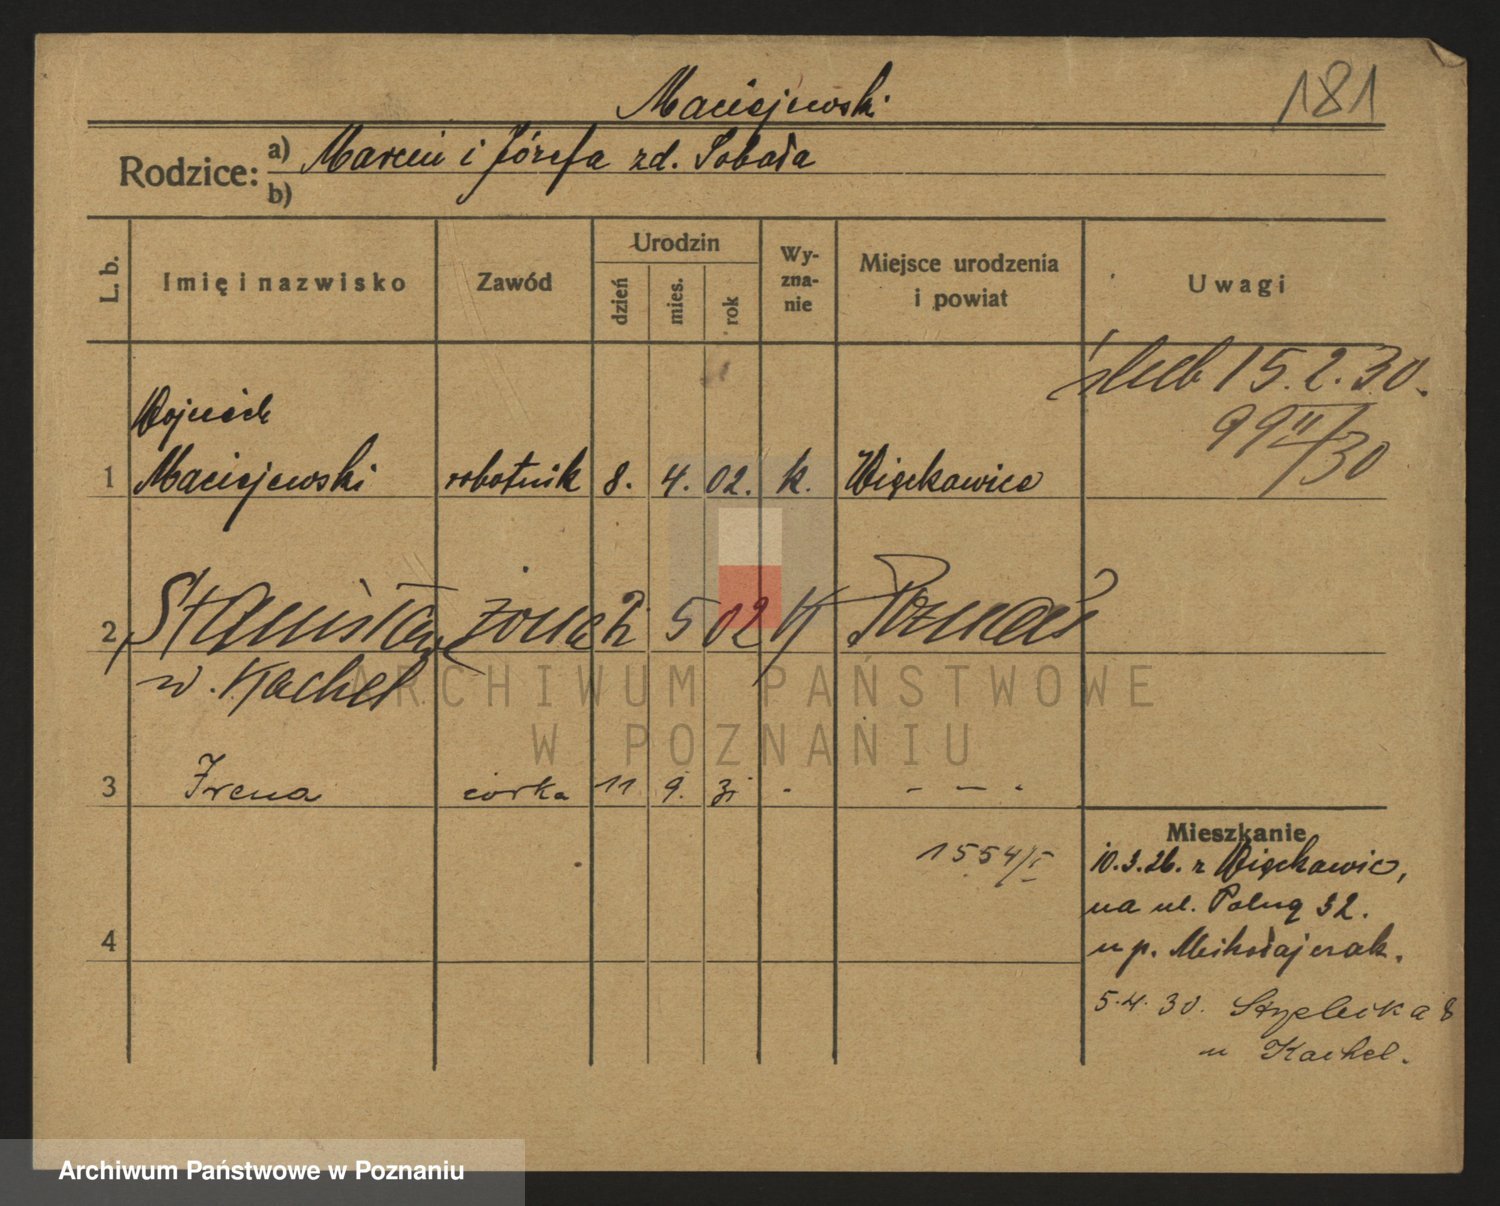 Maciejewski
181
Rodzice: a) Marcin i Józefa zd. Sobała
b)
L. b. Imię i nazwisko Zawód Urodzin dzień mies. rok Wy-zna-nie Miejsce urodzenia i powiat Uwagi
ślub 15.2.30.
99 II/30
Wojciech
1 Maciejewski robotnik 8. 4. 02. k. Więckowice
2 Stanisława żona 5 02 k Poznań
w. Kachel
3 Irena córka 11 9. 31 - - - -
1554/I
4
Mieszkanie
10.3.26. z Więckowic,
na ul. Polną 32.
u p. Mikołajczak.
5.4.30. 8
u Kachel.
ARCHIWUM PAŃSTWOWE
W POZNANIU
Archiwum Państwowe w Poznaniu